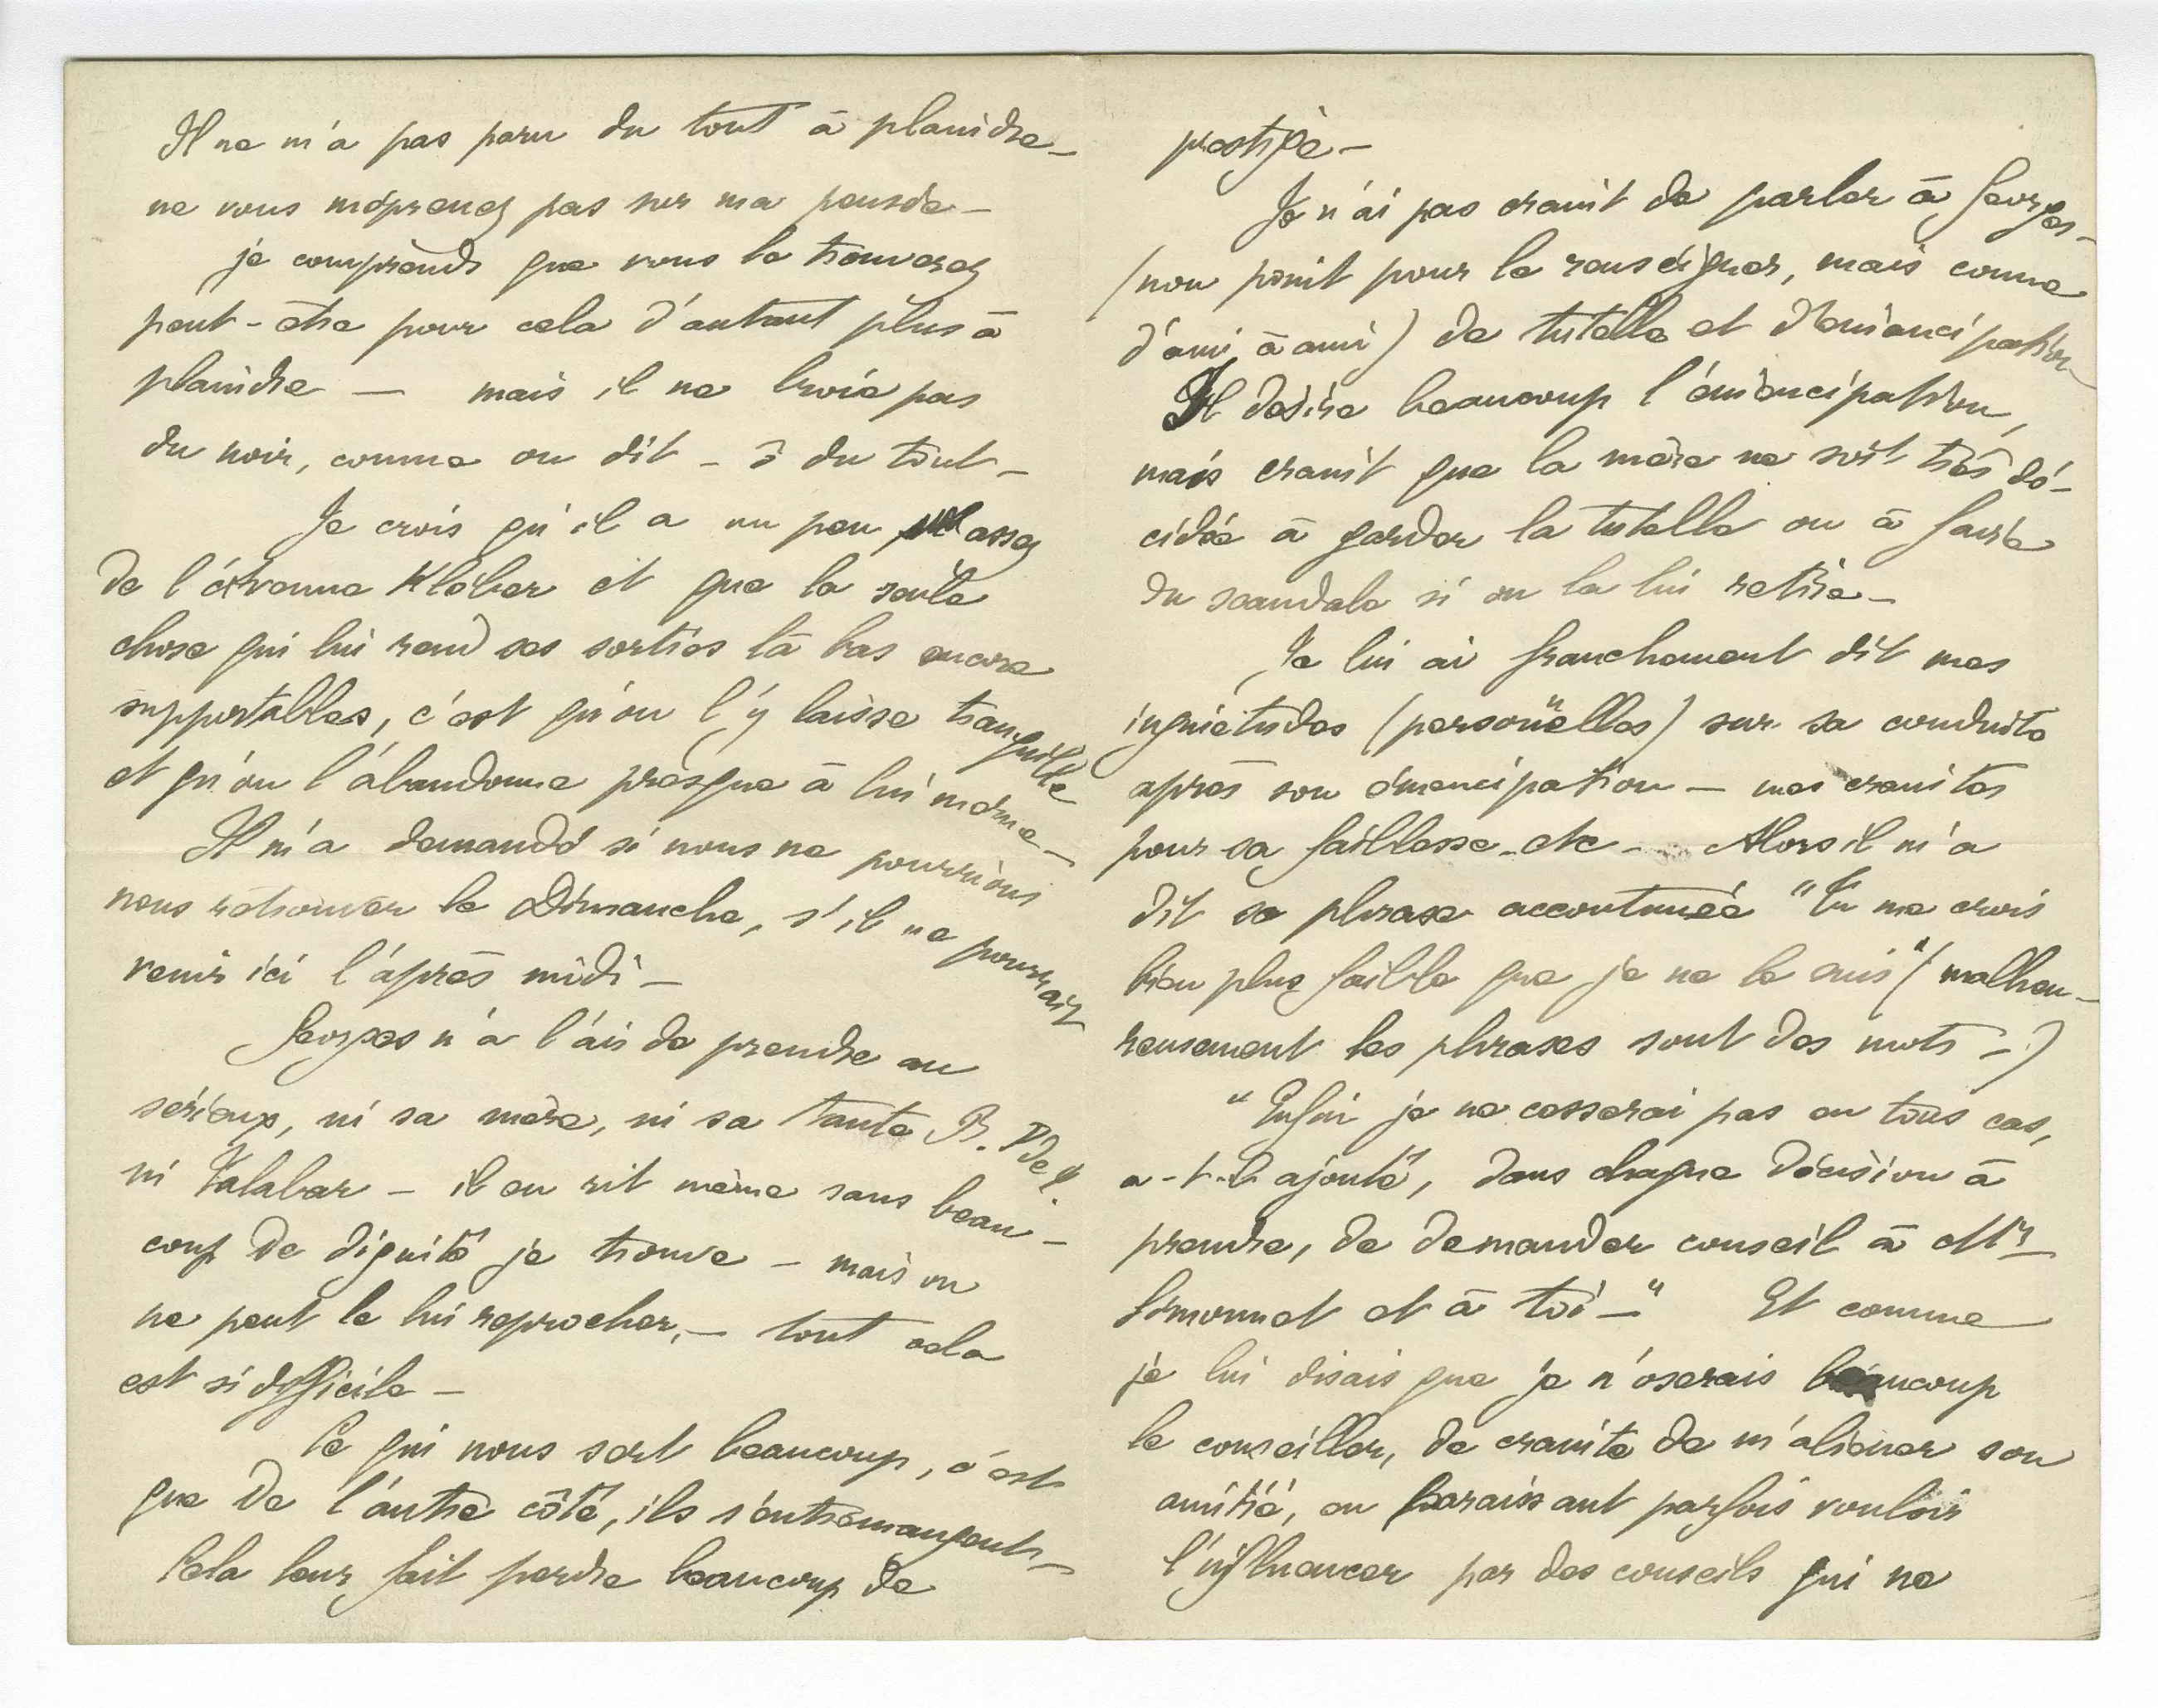 Il ne m'a pas paru du tout à plaindre —
ne vous méprenez pas sur ma pensée —
je comprends que vous le trouverez
peut-être pour cela d'autant plus à
plaindre — mais il ne broie pas
du noir, comme on dit — ô du tout —
Je crois qu'il a un peu assez
de l'avenue Kléber et que la seule
chose qui lui rend ses sorties là bas encore
supportables, c'est qu'on l'y laisse tranquille
et qu'on l'abandonne presque à lui même —
Il m'a demandé si nous ne pourrions
nous retrouver le Dimanche, s'il ne pourrait
venir ici l'après midi —
Georges n'a l'air de prendre au
sérieux, ni sa mère, ni sa tante B.
ni Valabar — il en rit même sans beau-
coup de dignité je trouve — mais on
ne peut le lui reprocher, — tout cela
est si difficile —
Ce qui nous sert beaucoup, c'est
que de l'autre côté, ils s'entremangent —
Cela leur fait perdre beaucoup de
prestige —
Je n'ai pas craint de parler à Georges —
(non point pour le renseigner, mais comme
d'ami à ami) de tutelle et d'émancipation
Il désire beaucoup l'émancipation,
mais craint que la mère ne soit très dé-
cidée à garder la tutelle ou à faire
du scandale si on la lui retire —
Je lui ai franchement dit mes
inquiétudes (personnelles) sur sa conduite
après son émancipation — mes craintes
pour sa faiblesse — etc — Alors il m'a
dit sa phrase accoutumée "Tu me crois
bien plus faible que je ne le suis" (malheu-
reusement les phrases sont des mots —)
"Enfin je ne cesserai pas en tous cas,
a-t-il ajouté, dans chaque décision à
prendre, de demander conseil à Mr
Simonnet et à toi —" Et comme
je lui disais que je n'oserais beaucoup
le conseiller, de crainte de m'aliéner son
amitié, en paraissant parfois vouloir
l'influencer par des conseils qui ne